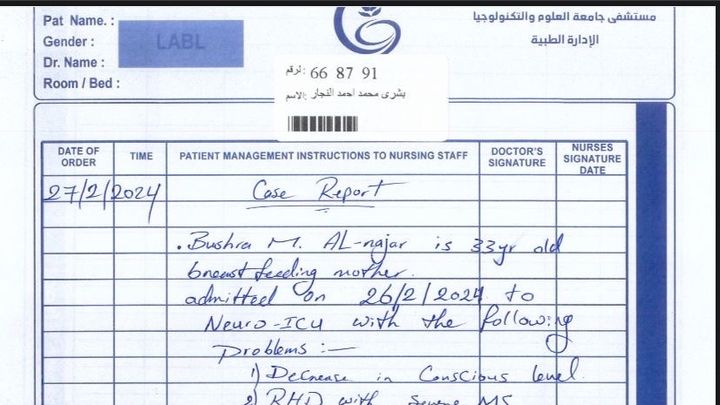 Pat Name. :
Gender :
LABL
Dr. Name :
Room / Bed :
مستشفى جامعة العلوم والتكنولوجيا
الإدارة الطبية
الرقم: 66 87 91
الاسم: بشرى محمد احمد النجار
DATE OF ORDER
TIME
PATIENT MANAGEMENT INSTRUCTIONS TO NURSING STAFF
DOCTOR'S SIGNATURE
NURSES SIGNATURE DATE
27/2/2024
Case Report
. Bushra M. AL-najar is 33yr old
breast feeding mother.
admitted on 26/2/2024 to
Neuro-ICU with the following
Problems :-
1) Decrease in Conscious level.
2) RHD with Severe MS